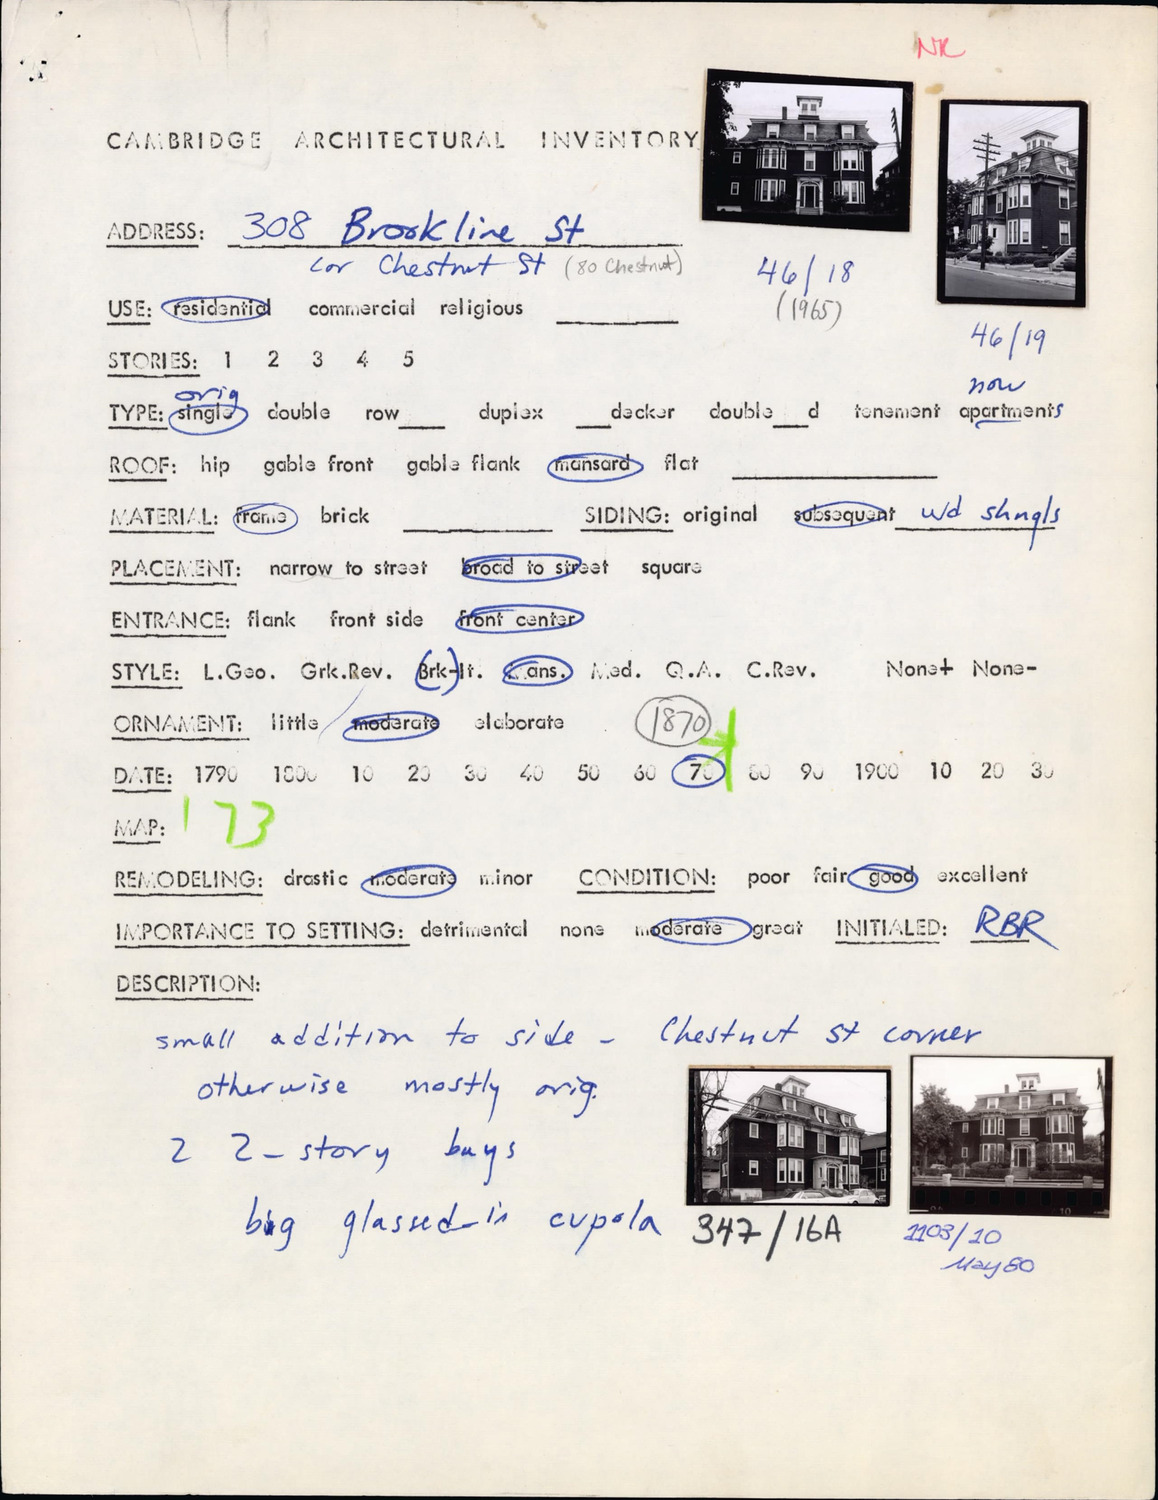 NR
CAMBRIDGE ARCHITECTURAL INVENTORY
ADDRESS: 308 Brookline St
cor Chestnut St (80 Chestnut)
46/18
(1965)
46/19
USE: residential commercial religious
STORIES: 1 2 3 4 5
orig
now
TYPE: single double row___ duplex ___decker double___d tenement apartments
ROOF: hip gable front gable flank mansard flat
MATERIAL: frame brick SIDING: original subsequent wd shngls
PLACEMENT: narrow to street broad to street square
ENTRANCE: flank front side front center
STYLE: L.Geo. Grk.Rev. (Brk-)It. Mans. Med. Q.A. C.Rev. None+ None-
ORNAMENT: little moderate elaborate 1870
DATE: 1790 1800 10 20 30 40 50 60 70 80 90 1900 10 20 30
MAP: 173
REMODELING: drastic moderate minor CONDITION: poor fair good excellent
IMPORTANCE TO SETTING: detrimental none moderate great INITIALED: RBR
DESCRIPTION:
small addition to side - Chestnut st corner
otherwise mostly orig.
2 2-story bays
big glassed-in cupola
347/16A
1103/10
May 80